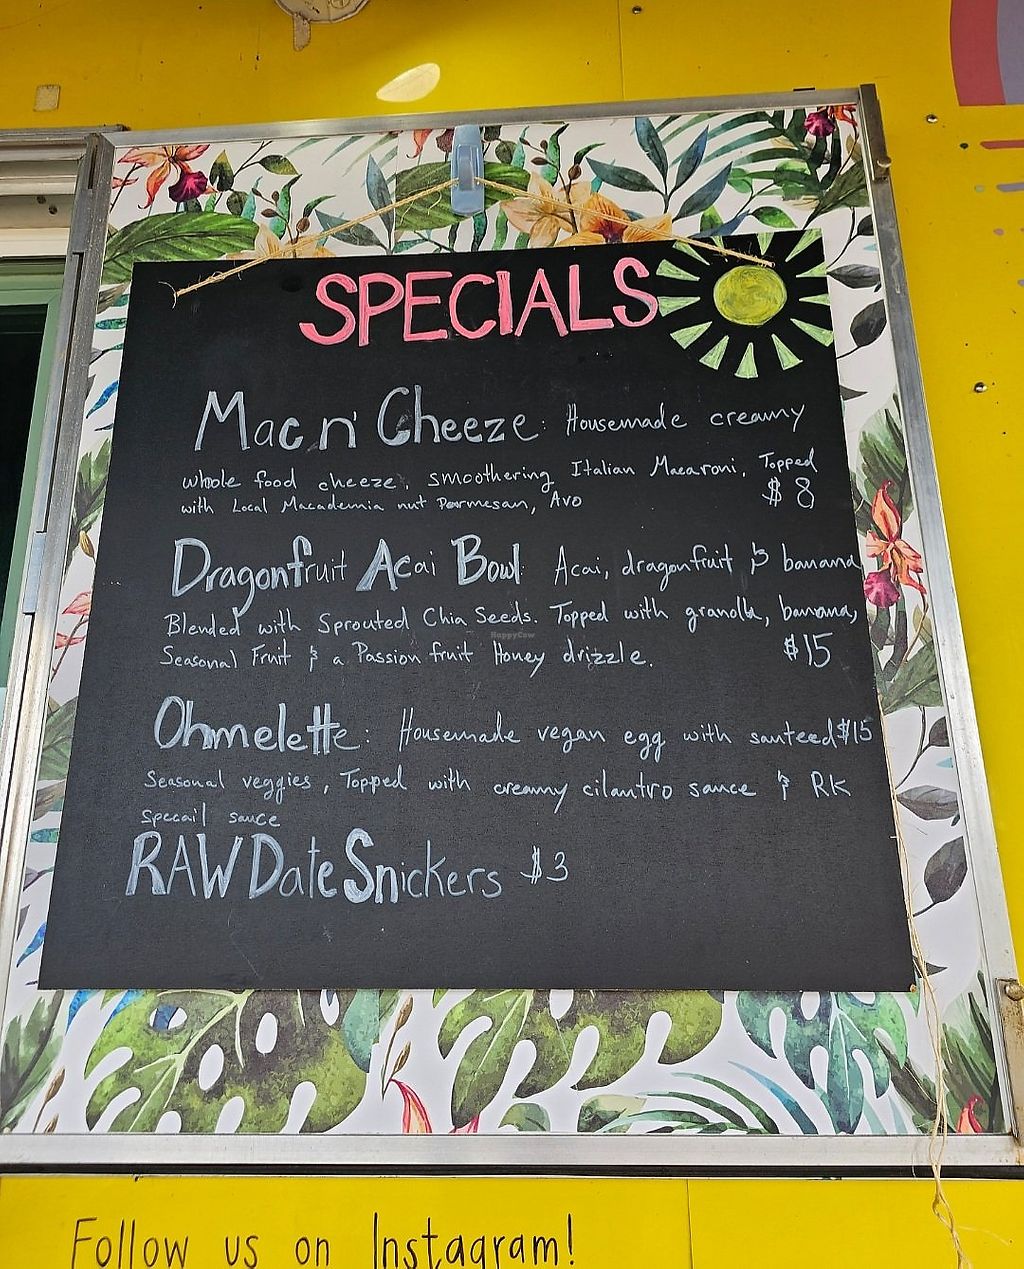 SPECIALS
Mac n' Cheeze: Housemade creamy
whole food cheeze, smoothering Italian Macaroni, Topped
with Local Macademia nut Parmesan, Avo $8
Dragonfruit Acai Bowl Acai, dragonfruit & banana
Blended with Sprouted Chia Seeds. Topped with granolla, banana,
Seasonal Fruit & a Passion fruit Honey drizzle. $15
HappyCow
Ohmelette: Housemade vegan egg with sauteed $15
Seasonal veggies, Topped with creamy cilantro sauce & RK
specail sauce
RAW Date Snickers $3
Follow us on Instagram!